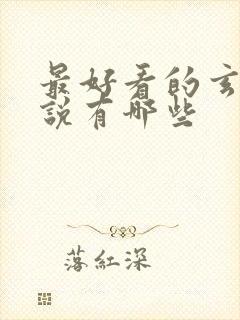 最好看的玄
說有哪些
落紅深